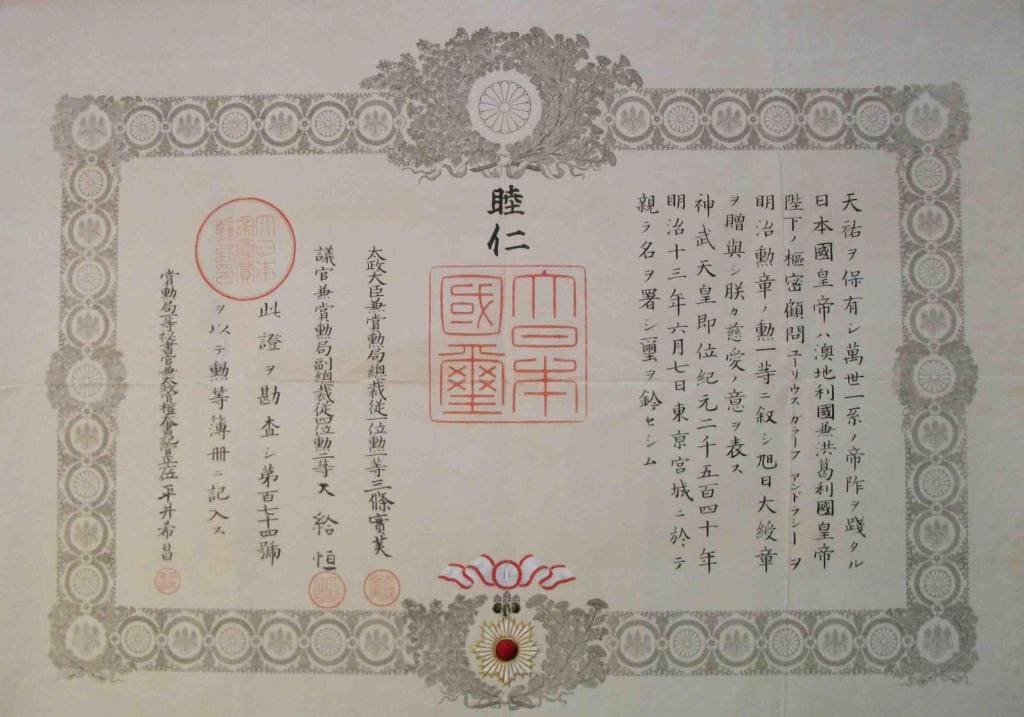 天祐ヲ保有シ萬世一系ノ帝阼ヲ踐タル
日本國皇帝ハ澳地利國兼洪葛利國皇帝
陛下ノ樞密顧問ユーリウス ガラーフ アンドラシーヲ
明治勲章ノ勲一等ニ叙シ旭日大綬章
ヲ贈與シ朕カ慈愛ノ意ヲ表ス
神武天皇即位紀元二千五百四十年
明治十三年六月七日東京宮城ニ於テ
親ラ名ヲ署シ璽ヲ鈐セシム
睦仁
大日本
國璽
太政大臣兼賞勲局總裁從一位勲一等三條實美
議官兼賞勲局副總裁從四位勲二等大給恒
此證ヲ勘査シ第百七十四號
ヲ以テ勲等簿册ニ記入ス
大日本
賞勲局 秘書官兼 平井希昌